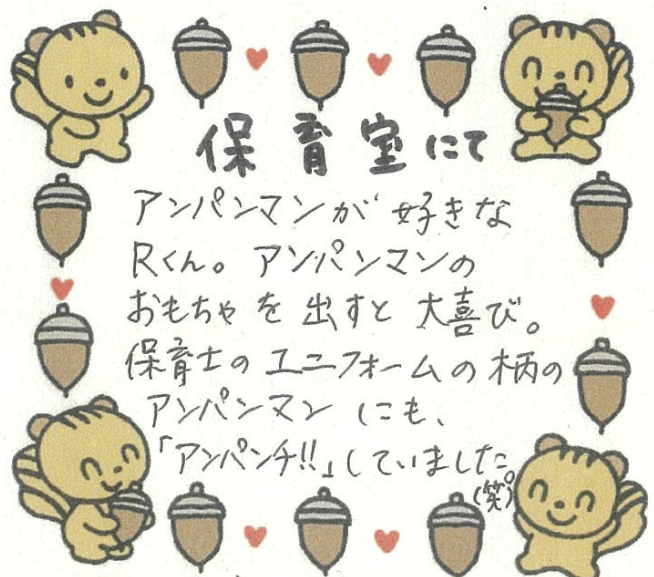 保育室にて
アンパンマンが好きな
Rくん。アンパンマンの
おもちゃを出すと大喜び。
保育士のユニフォームの柄の
アンパンマンにも、
「アンパンチ!!」していました。
(笑)